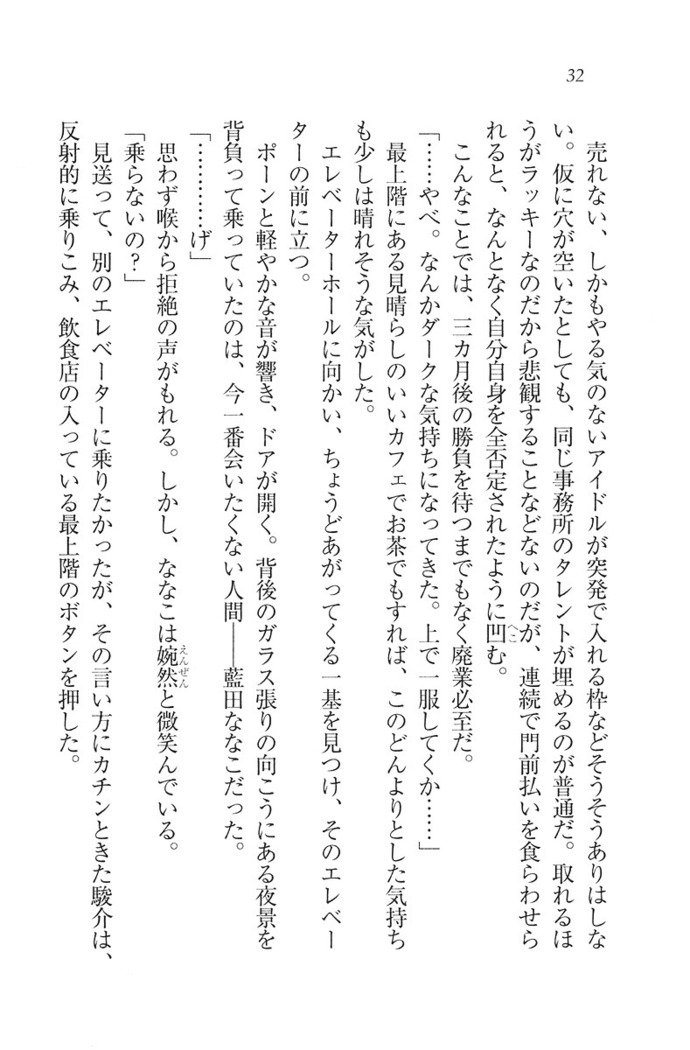 32
売れない、しかもやる気のないアイドルが突発で入れる枠などそうそうありはしな
い。仮に穴が空いたとしても、同じ事務所のタレントが埋めるのが普通だ。取れるほ
うがラッキーなのだから悲観することなどないのだが、連続で門前払いを食らわせら
れると、なんとなく自分自身を全否定されたように凹む。
へこ
こんなことでは、三カ月後の勝負を待つまでもなく廃業必至だ。
「……やべ。なんかダークな気持ちになってきた。上で一服してくか……」
最上階にある見晴らしのいいカフェでお茶でもすれば、このどんよりとした気持ち
も少しは晴れそうな気がした。
エレベーターホールに向かい、ちょうどあがってくる一基を見つけ、そのエレベー
ターの前に立つ。
ポーンと軽やかな音が響き、ドアが開く。背後のガラス張りの向こうにある夜景を
背負って乗っていたのは、今一番会いたくない人間――藍田ななこだった。
「…………げ」
思わず喉から拒絶の声がもれる。しかし、ななこは婉然と微笑んでいる。
えんぜん
「乗らないの？」
見送って、別のエレベーターに乗りたかったが、その言い方にカチンときた駿介は、
反射的に乗りこみ、飲食店の入っている最上階のボタンを押した。